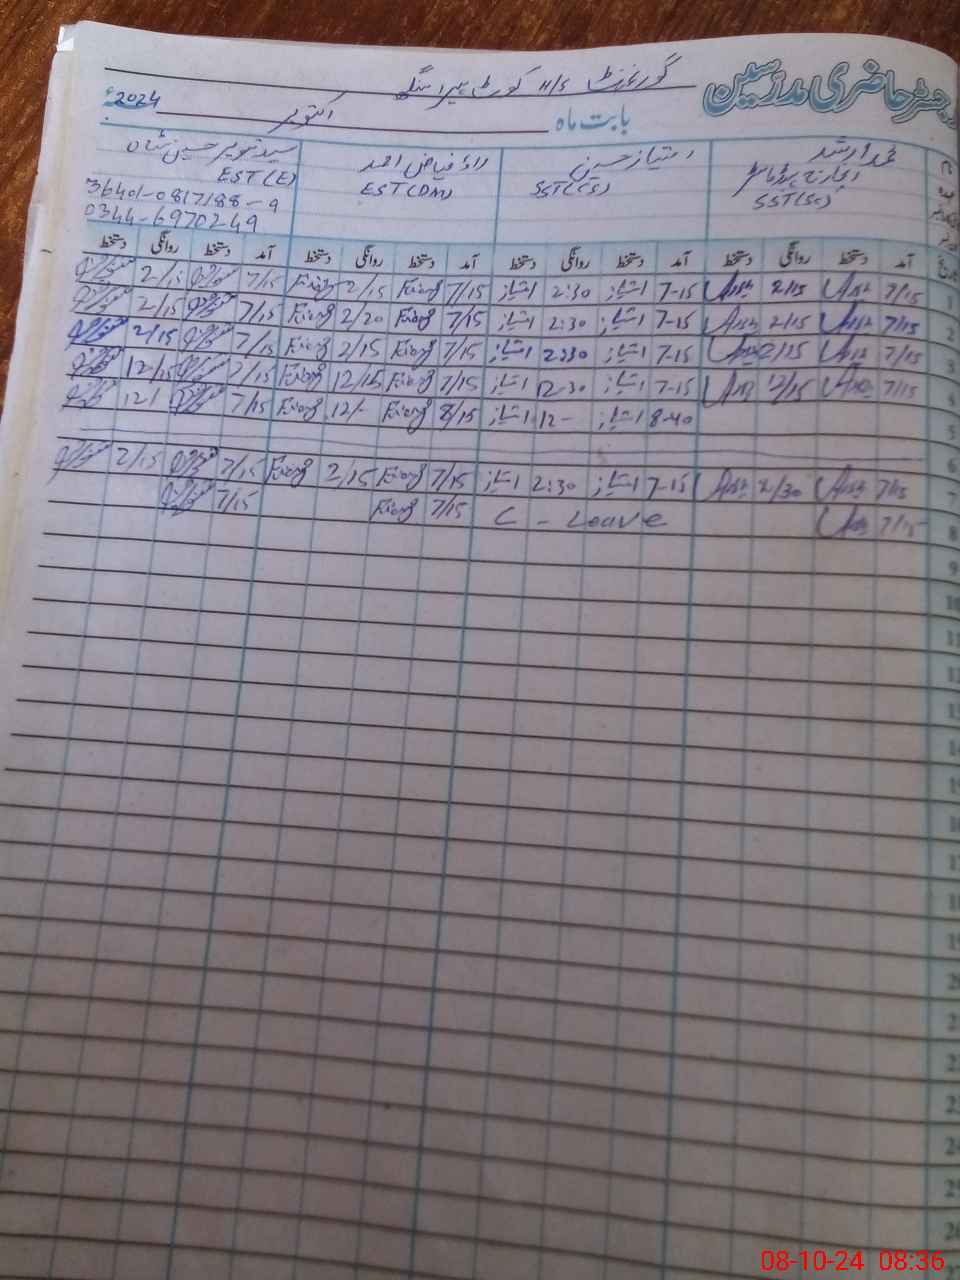 رجسٹر حاضری مدرسین گورنمنٹ H/S کورٹ
بابت ماہ اکتوبر 2024ء
محمد ارشد امتیاز حسین راؤ فیاض احمد سید تنویر حسین شاہ
انچارج ہیڈماسٹر SST(CS) EST(DM) EST(E)
SST(Sc) 36401-0817188-9
0344-6970249
آمد دستخط روانگی دستخط آمد دستخط روانگی دستخط آمد دستخط روانگی دستخط آمد دستخط روانگی دستخط
1 7/15 2/15 7-15 امتیاز 2:30 امتیاز 7/15 Fiaz 2/15 Fiaz 7/15 2/15
2 7/15 2/15 7-15 امتیاز 2:30 امتیاز 7/15 Fiaz 2/20 Fiaz 7/15 2/15
3 7/15 2/15 7-15 امتیاز 2:30 امتیاز 7/15 Fiaz 2/15 Fiaz 7/15 2/15
4 7/15 12/15 7-15 امتیاز 12-30 امتیاز 7/15 Fiaz 12/15 Fiaz 7/15 12/15
5 8-40 امتیاز 12- امتیاز 8/15 Fiaz 12/- Fiaz 7/15 12/
6
7 7/15 2/30 7-15 امتیاز 2:30 امتیاز 7/15 Fiaz 2/15 Fiaz 7/15 2/15
8 7/15 C - Leave 7/15 Fiaz 7/15
9
10
11
12
13
14
15
16
17
18
19
20
21
22
23
24
25
26
08-10-24 08:36